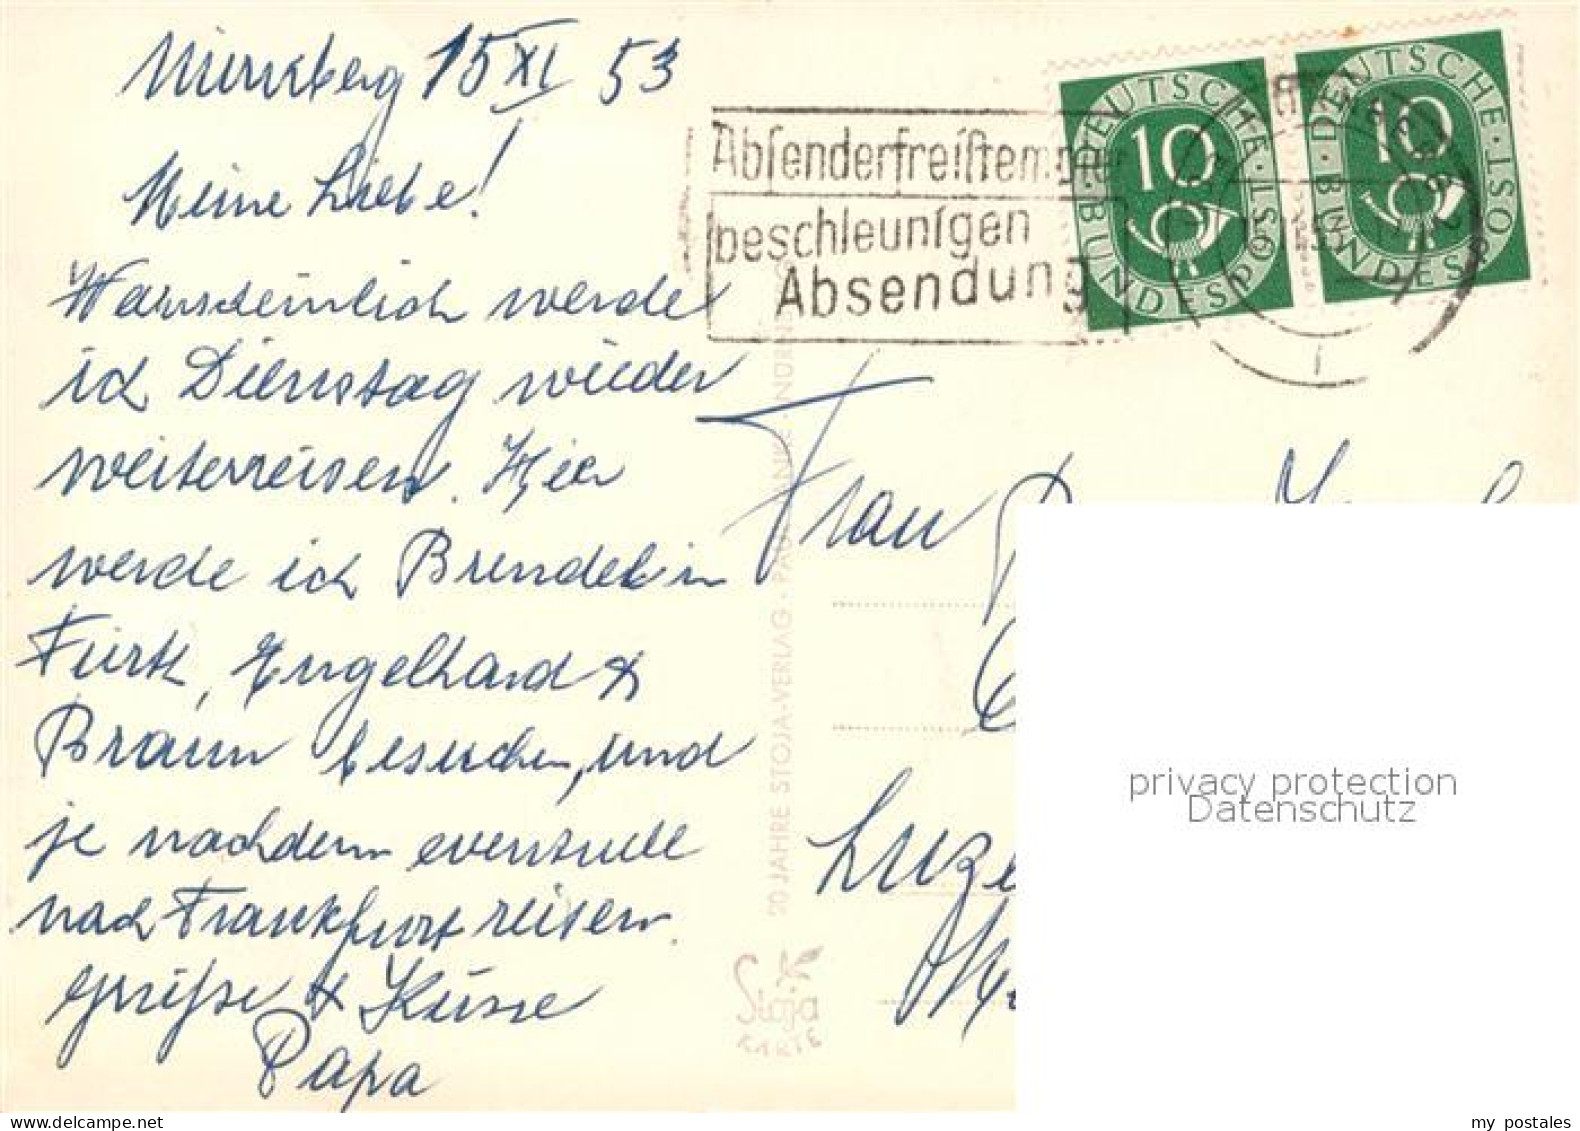 Nürnberg 15 XI 53
Meine Liebe!
Warscheinlich werde
ich Dienstag wieder
weiterreisen. Hier
werde ich Brendel in
Fürth, Engelhard &
Braun besuchen, und
je nachdem eventuell
nach Frankfurt reisen.
Grüsse & Küsse
Papa
Absenderfreistemp
beschleunigen
Absendung
DEUTSCHE BUNDESPOST 10
DEUTSCHE BUNDESPOST 10
20 JAHRE STOJA-VERLAG · PAUL JANKE · NÜRNBERG
Stoja
KARTE
Frau
Luze
privacy protection
Datenschutz
my postales